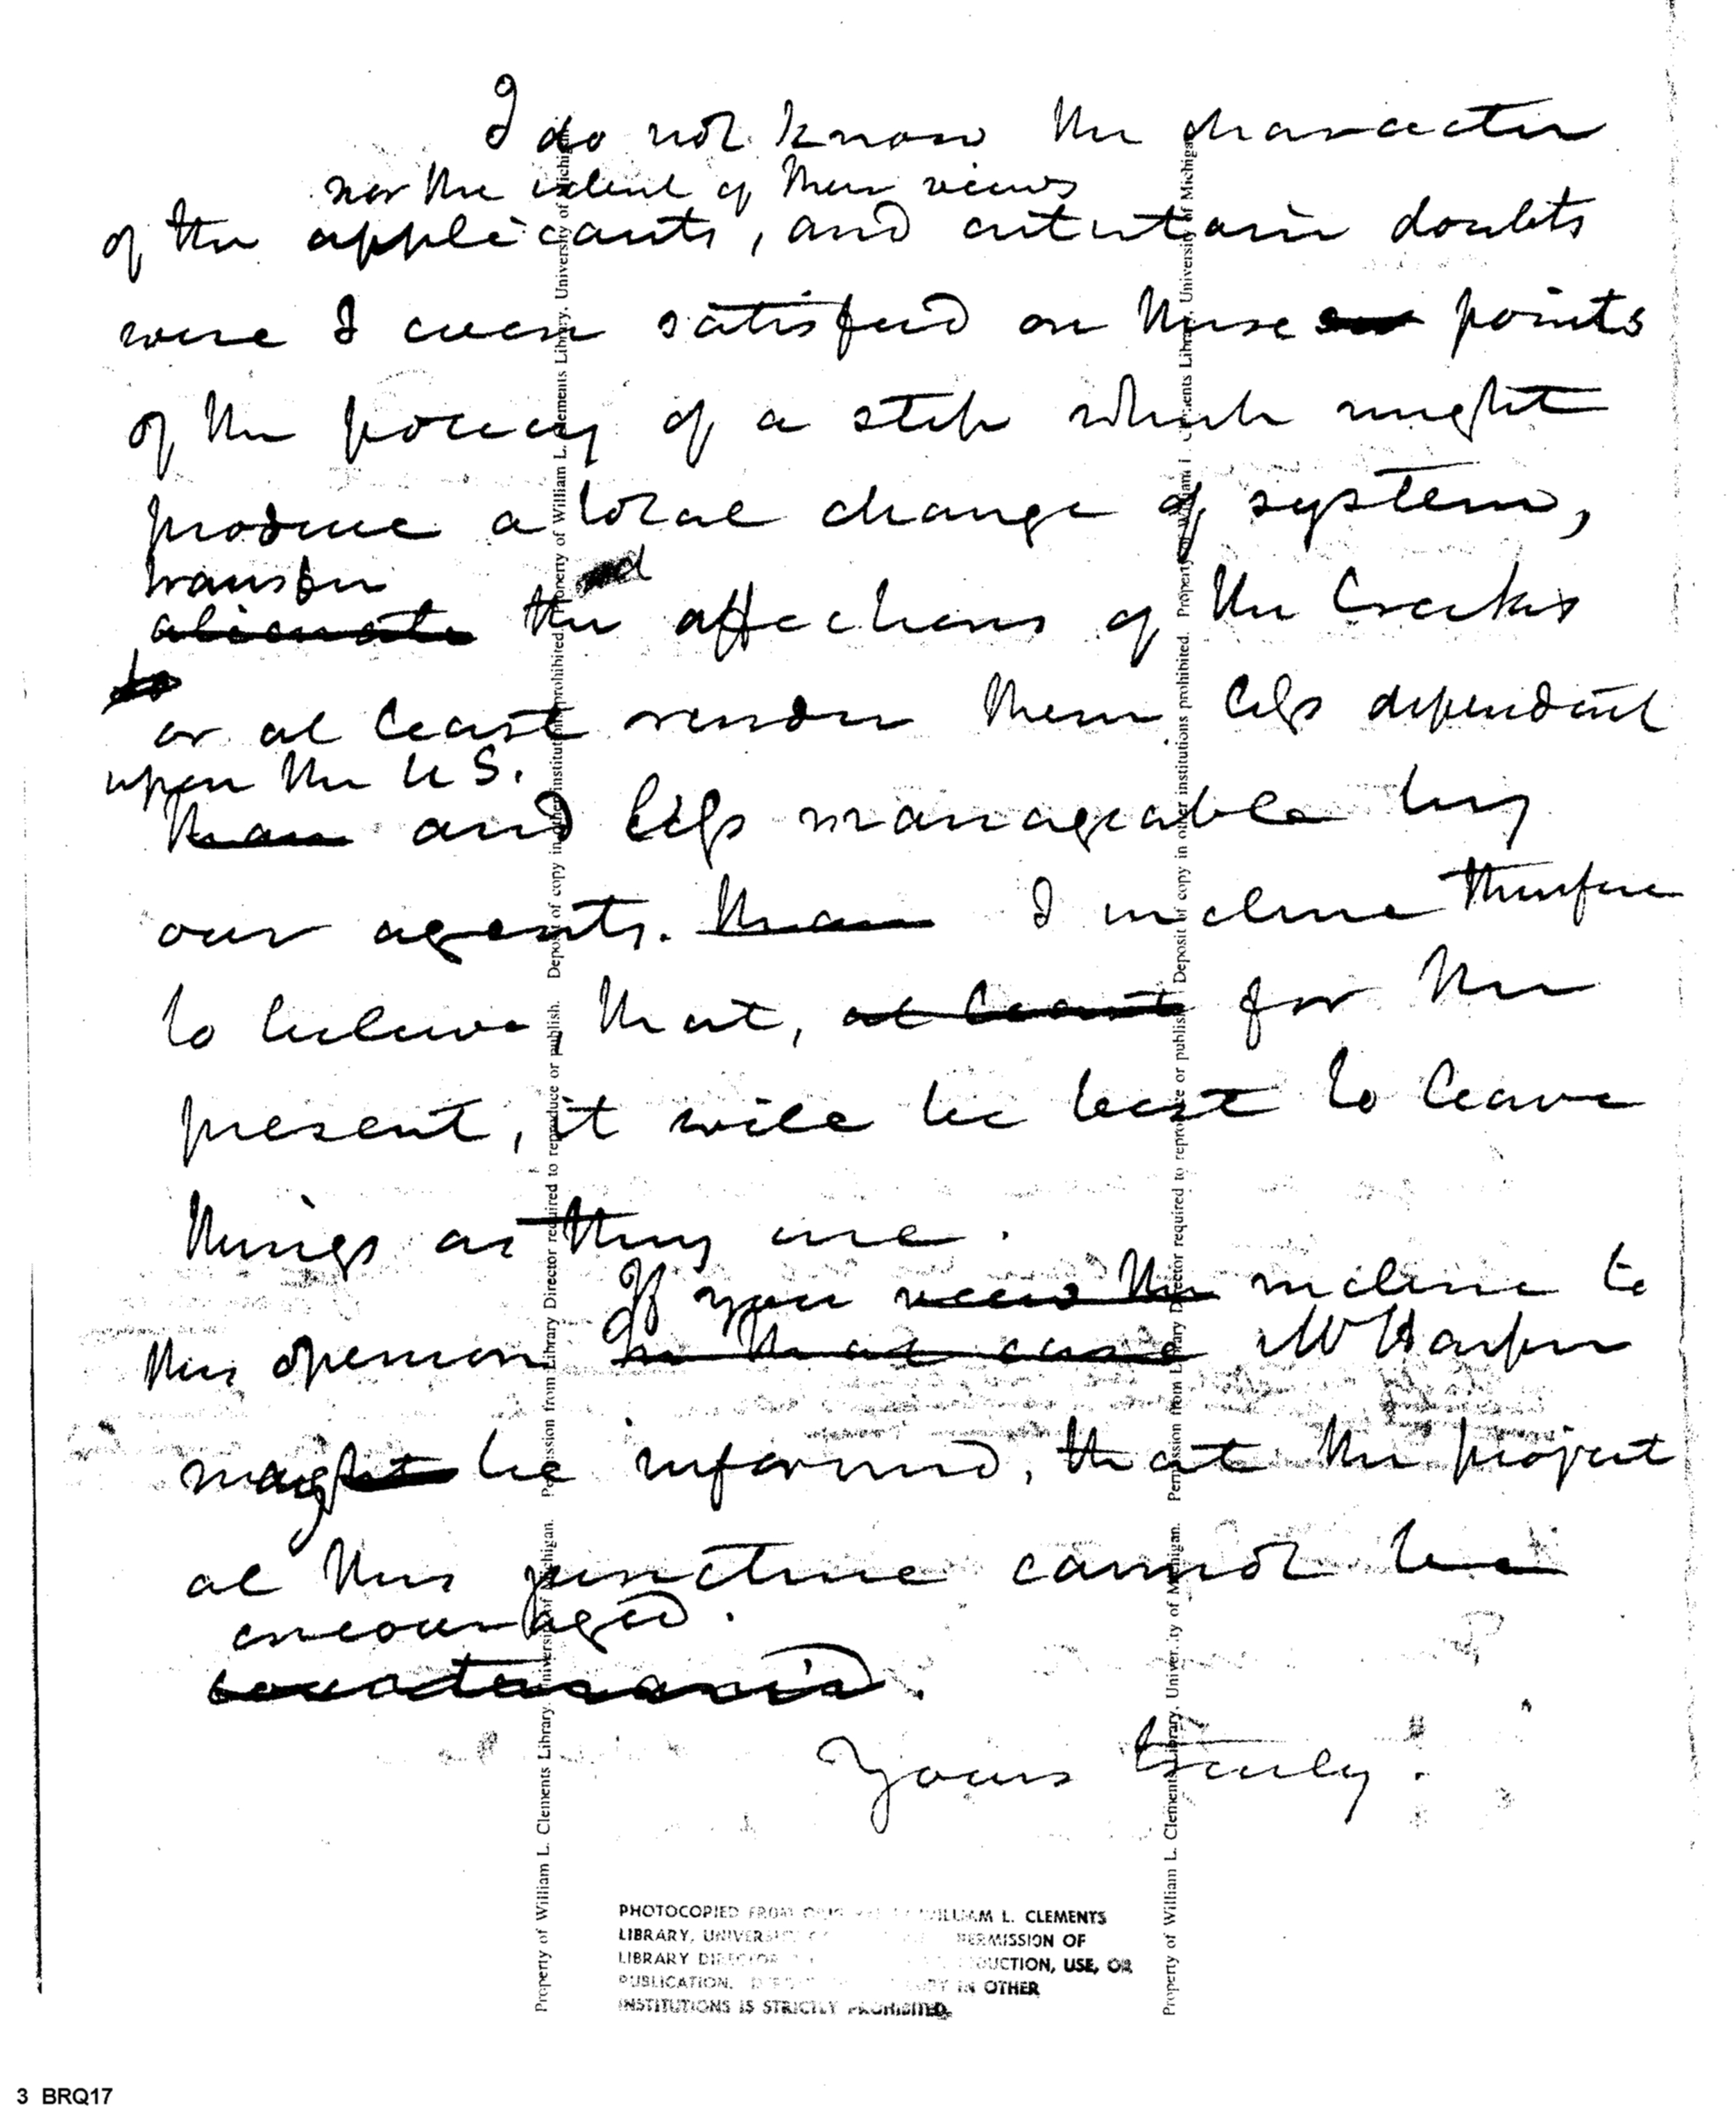 I do not know the character
nor the extent of their views
of the applicants, and entertain doubts
were I even satisfied on these points
of the policy of a step which might
produce a total change of system,
transfer
alienate the affections of the Creeks
to
or at least render them less dependent
upon the U S.
than and less manageable by
our agents. than I incline therefore
to believe that, at least for the
present, it will be best to leave
things as they are.
If you view the incline to
this opinion in that case Mr Harper
might be informed, that the project
at this juncture cannot be
encouraged.
countenanc'd.
Yours truly.
PHOTOCOPIED FROM WILLIAM L. CLEMENTS
LIBRARY, PERMISSION OF
LIBRARY DIRECTOR USE, OR
PUBLICATION. COPY IN OTHER
INSTITUTIONS IS STRICTLY PROHIBITED.
Property of William L. Clements Library, University of Michigan. Permission from Library Director required to reproduce or publish. Deposit of copy in other institutions prohibited. Property of William L. Clements Library, University of Michigan
Property of William L. Clements Library, University of Michigan. Permission from Library Director required to reproduce or publish. Deposit of copy in other institutions prohibited. Property of William L. Clements Library, University of Michigan
3 BRQ17